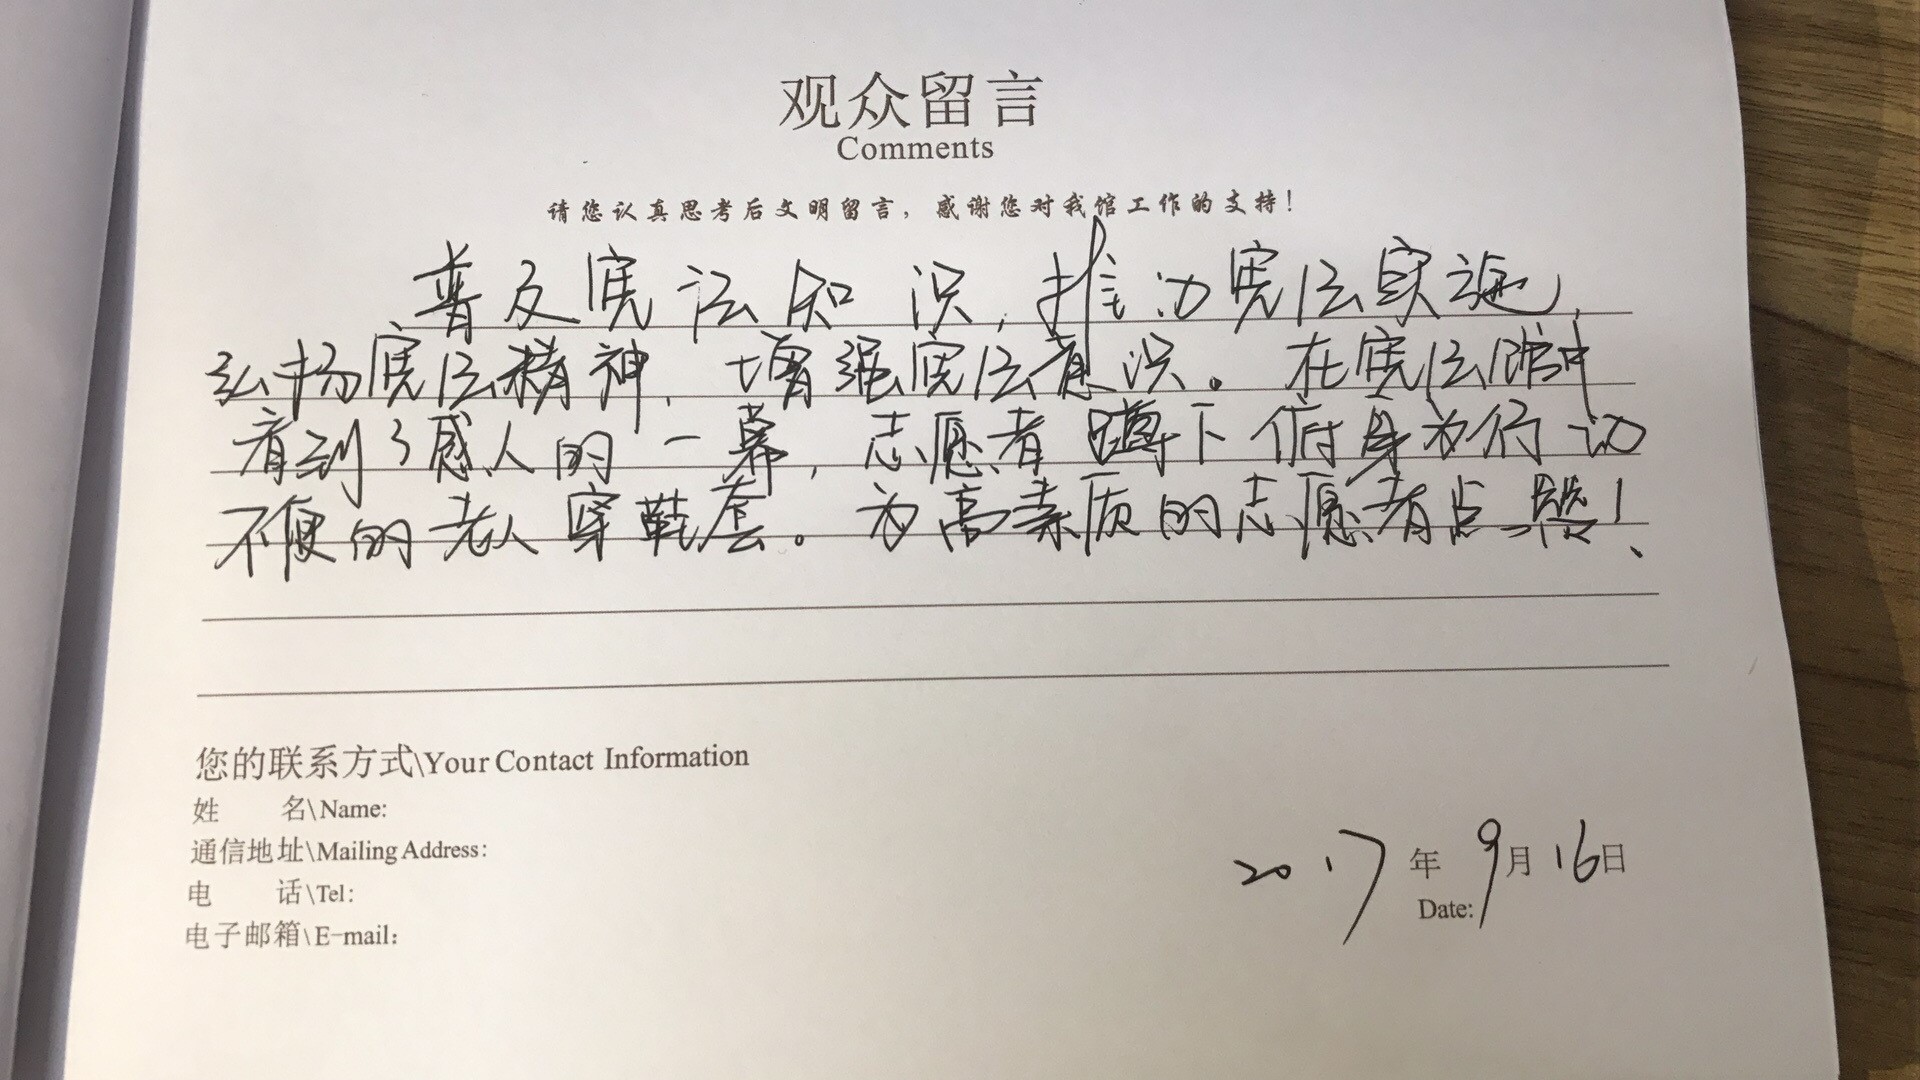 观众留言
Comments
请您认真思考后文明留言，感谢您对我馆工作的支持！
普及宪法知识，推动宪法实施，
弘扬宪法精神，增强宪法意识。在宪法馆中
看到了感人的一幕，志愿者蹲下俯身为行动
不便的老人穿鞋套。为高素质的志愿者点赞！
您的联系方式\Your Contact Information
姓 名\Name:
通信地址\Mailing Address:
电 话\Tel:
电子邮箱\E-mail:
2017年9月16日
Date: